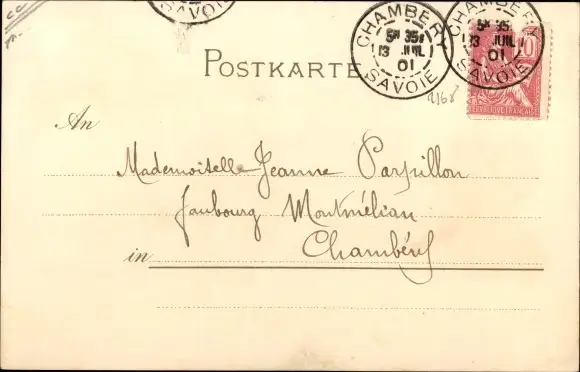 CC
SAVOIE
CHAMBÉRY
5M 35
13 JUIL
01
SAVOIE
CHAMBÉRY
5M 35
13 JUIL
01
SAVOIE
10
RÉPUBLIQUE FRANÇAISE
POSTKARTE
2168
An
Mademoiselle Jeanne Parpillon
faubourg Montmélian
in Chambéry